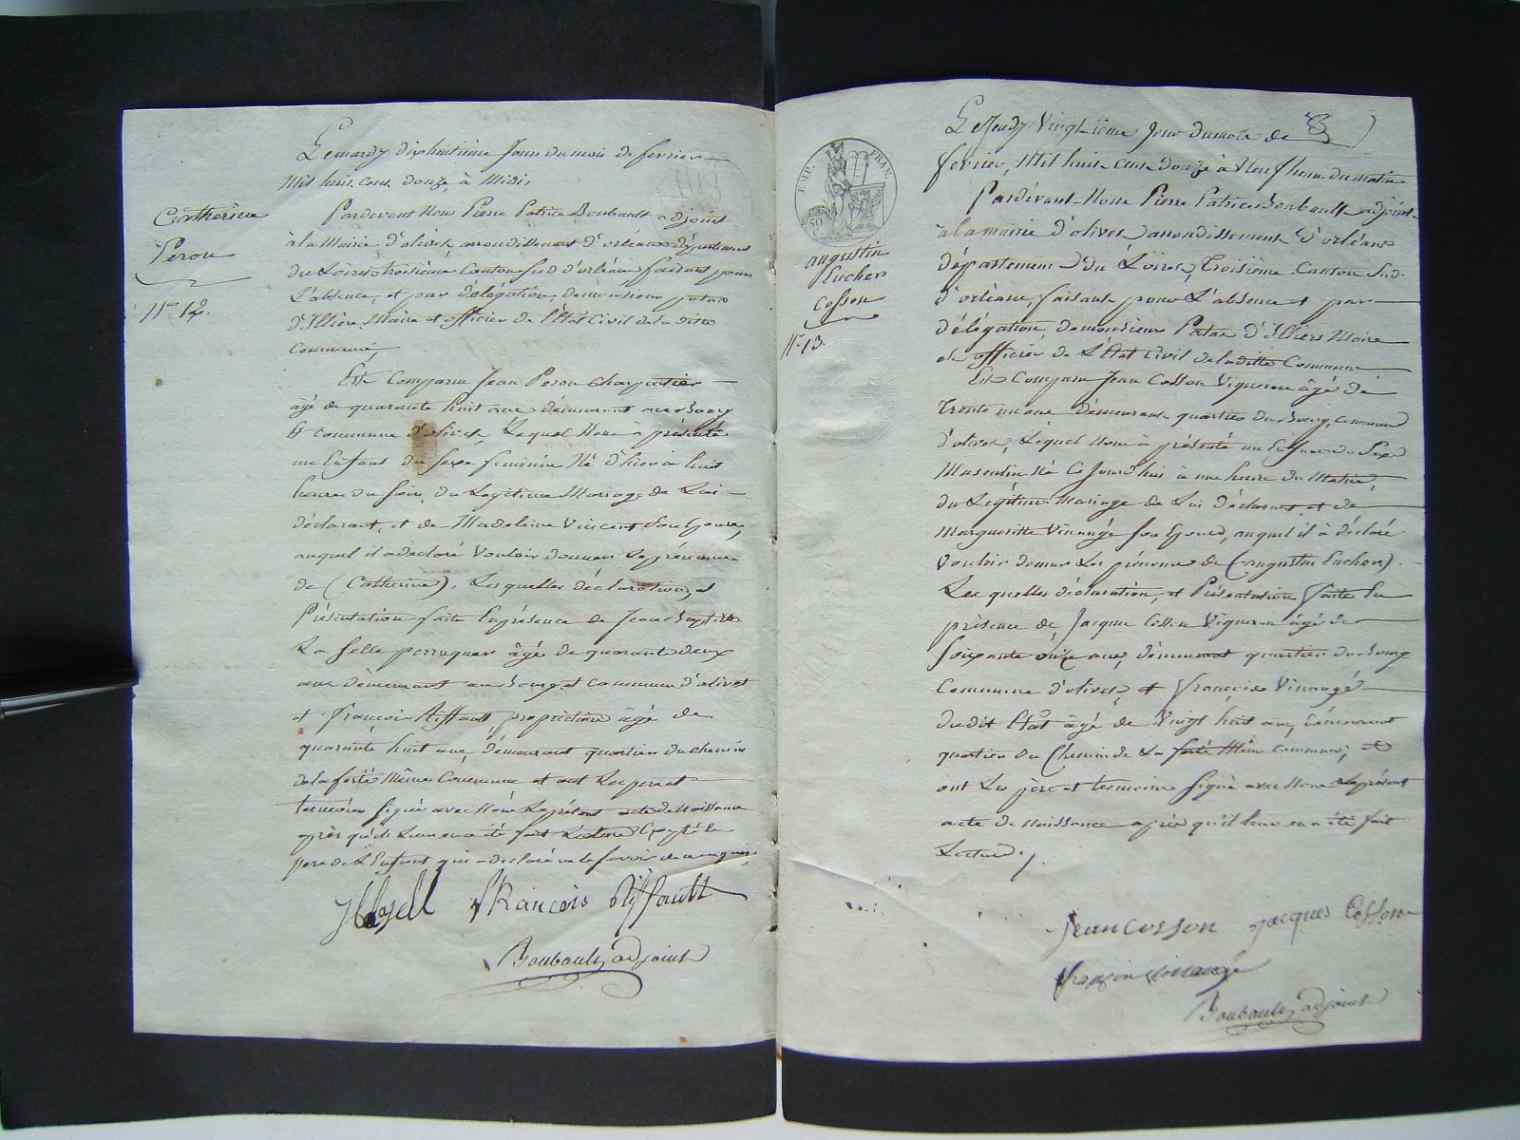 Catherine
Perou
N° 12.
Le mardy dix huitième Jour du mois de fevrier
Mil huit cens douze, à Midi,
Pardevant Nous Pierre Patrice Boubault adjoint
à la Mairie d'olivet, arrondissement d'orléans département
du Loiret, troisième Canton sud d'orléans, faisant pour
L'absence, et par délégation, de monsieur
d'Illiers, Maire et officier de l'Etat Civil de la dite
Commune,
Est Comparu Jean Perou Charpentier
âgé de quarante huit ans demeurant au Bourg
Et commune d'olivet, Lequel Nous à présenté
un Enfant du sexe féminin Né d'hier à huit
heures du soir, du Legitime Mariage de Lui
déclarant, et de Madeleine Vincent son Epouse,
auquel il a déclaré Vouloir donner Le prénom
de (Catherine). Lesquelles déclaration et
Présentation faite En présence de Jean Baptiste
La Selle perruquier âgé de quarante deux
ans demeurant au Bourg et commune d'olivet
et François Riffault, propriétaire âgé de
quarante huit ans, demeurant quartier du chemin
de la ferté Même Commune et ont Les père et
temoins signé avec Nous Le présent acte de Naissance
après qu'il Leur en a été fait Lecture Excepté le
pere de L'Enfant qui a déclaré ne le savoir de ce enquis
François Riffault
Boubault, adjoint
EMP. FRAN.
augustin
Eucher
Cosson
N° 13.
Le Jeudy Vingtième Jour du mois de
fevrier, Mil huit cens douze à Neuf heures du matin
Pardevant Nous Pierre Patrice Boubault adjoint
à la mairie d'olivet arrondissement d'orléans
département du Loiret, Troisième Canton Sud
d'orléans, faisant pour L'absence et par
délégation, de monsieur d'Illiers Maire
et officier de L'Etat Civil de la ditte Commune
Est Comparu Jean Cosson Vigneron âgé de
trente un ans demeurant quartier du Bourg, commune
d'olivet, Lequel Nous à présenté un Enfant du Sexe
Masculin Né Ce Jourd'hui à une heure du Matin,
du Légitime Mariage de Lui déclarant et de
Marguerite Vinnagé son Epouse, auquel il à déclaré
Vouloir donner Les prénoms de (augustin Eucher).
Lesquelles déclaration, et Présentation faite En
présence de Jacques Cosson Vigneron âgé de
Soixante onze ans, demeurant quartier du Bourg
Commune d'olivet, et François Vinnagé
dudit Etat âgé de Vingt huit ans, demeurant
quartier du Chemin de La ferté Même commune, et
ont Les père et temoins signé avec Nous Le présent
acte de Naissance après qu'il leur en a été fait
Lecture.
Jean Cosson Jacques Cosson
François Vinnagé
Boubault, adjoint